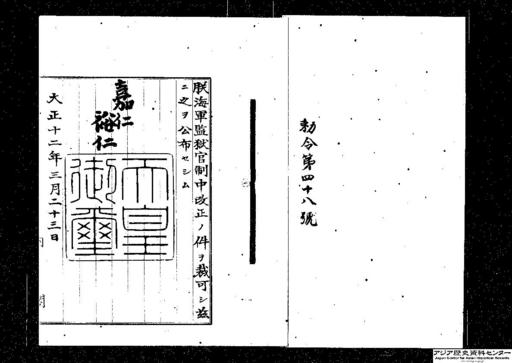 勅令第四十八號
朕海軍監獄官制中改正ノ件ヲ裁可シ茲
ニ之ヲ公布セシム
嘉仁
裕仁
天皇
御璽
大正十二年三月二十三日
アジア歴史資料センター
Japan Center for Asian Historical Records